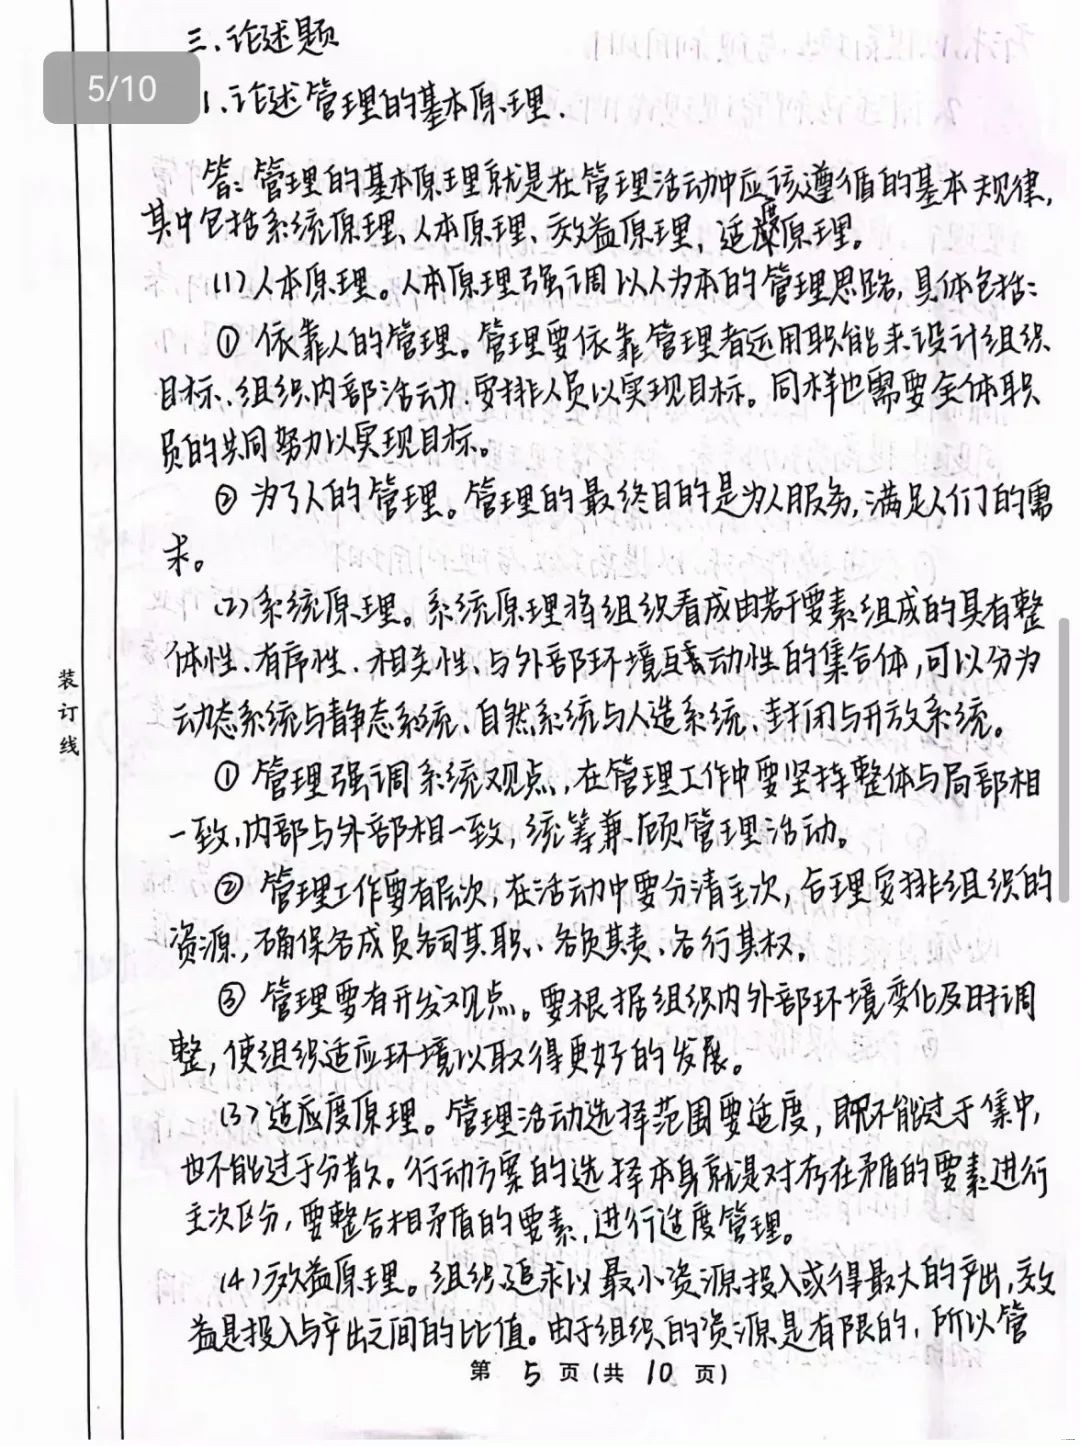 三、论述题
5/10
1、论述管理的基本原理.
答:管理的基本原理就是在管理活动中应该遵循的基本规律,
其中包括系统原理、人本原理、效益原理、适度原理。
(1)人本原理。人本原理强调以人为本的管理思路,具体包括:
① 依靠人的管理。管理要依靠管理者运用职能来设计组织
目标、组织内部活动、安排人员以实现目标。同样也需要全体职
员的共同努力以实现目标。
② 为了人的管理。管理的最终目的是为人服务,满足人们的需
求。
(2)系统原理。系统原理将组织看成由若干要素组成的具有整
体性、有序性、相关性、与外部环境互动性的集合体,可以分为
动态系统与静态系统、自然系统与人造系统、封闭与开放系统。
① 管理强调系统观点,在管理工作中要坚持整体与局部相
一致,内部与外部相一致,统筹兼顾管理活动。
② 管理工作要有层次,在活动中要分清主次,合理安排组织的
资源,确保各成员各司其职、各负其责、各行其权。
③ 管理要有开发观点。要根据组织内外部环境变化及时调
整,使组织适应环境以取得更好的发展。
(3)适应度原理。管理活动选择范围要适度,既不能过于集中,
也不能过于分散。行动方案的选择本身就是对存在矛盾的要素进行
主次区分,要整合相矛盾的要素,进行适度管理。
(4)效益原理。组织追求以最小资源投入或得最大的产出,效
益是投入与产出之间的比值。由于组织的资源是有限的,所以管
第 5 页(共 10 页)
装
订
线